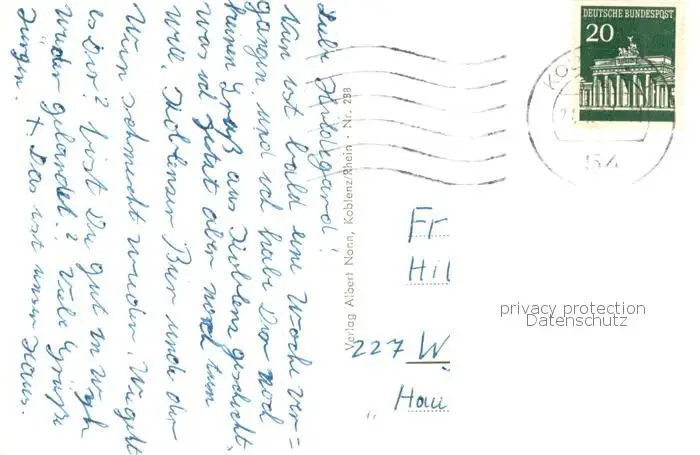 Liebe Hildegard!
Nun ist bald eine Woche ver=
gangen und ich habe Dir noch
keinen Gruß aus Koblenz geschickt,
was ich jetzt aber noch tun
will. Koblenzer Bier und der
Wein schmeckt wieder. Wie geht
es Dir? Bist Du gut in
wieder gelandet? Viele Grüße
Jürgen. + Das ist unser Haus.
Verlag Albert Nann, Koblenz/Rhein · Nr. 288
DEUTSCHE BUNDESPOST
20
KO
54
Fr
Hil
227 W
„Hau
privacy protection
Datenschutz